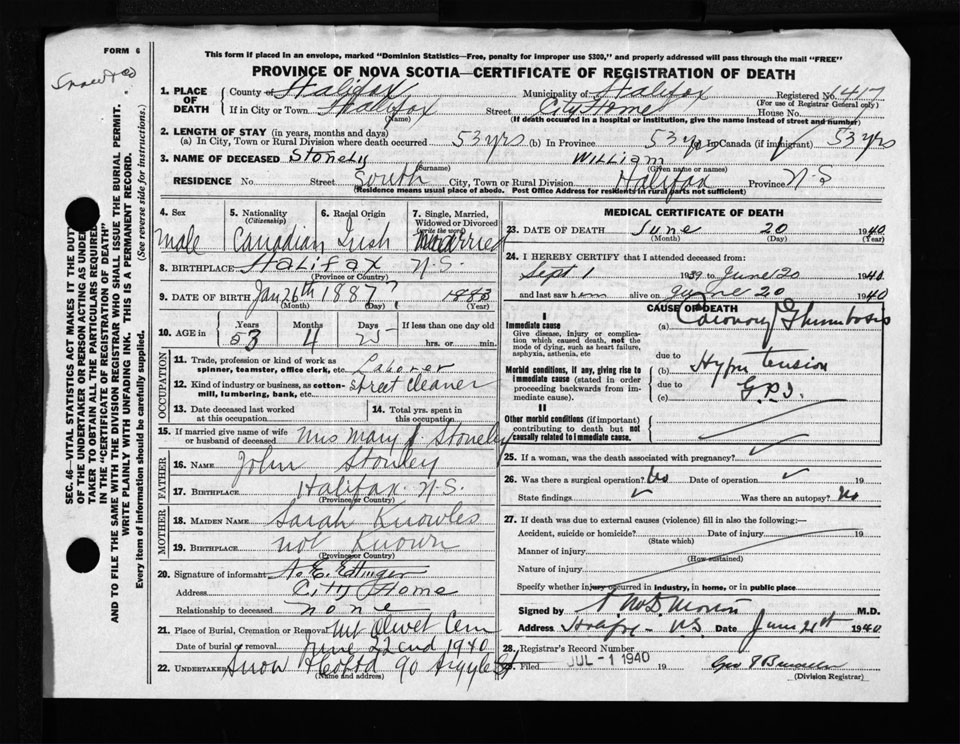 FORM 6
This form if placed in an envelope, marked "Dominion Statistics—Free, penalty for improper use $300," and properly addressed will pass through the mail "FREE"
PROVINCE OF NOVA SCOTIA—CERTIFICATE OF REGISTRATION OF DEATH
1. PLACE OF DEATH County of Halifax Municipality of Halifax Registered No. 417
(For use of Registrar General only)
If in City or Town Halifax Street City Home House No.
(Name) (If death occurred in a hospital or institution, give the name instead of street and number)
2. LENGTH OF STAY (in years, months and days)
(a) In City, Town or Rural Division where death occurred 53 yrs (b) In Province 53 yrs (c) In Canada (if immigrant) 53 yrs
3. NAME OF DECEASED Stonely William
(Surname) (Given name or names)
RESIDENCE No. Street South City, Town or Rural Division Halifax Province N-S
(Residence means usual place of abode. Post Office Address for residents in rural parts not sufficient)
4. Sex male
5. Nationality (Citizenship) Canadian
6. Racial Origin Irish
7. Single, Married, Widowed or Divorced (write the word) Married
8. BIRTHPLACE Halifax N.S.
(Province or Country)
9. DATE OF BIRTH Jan 26th 1887 ? 1883
(Month) (Day) (Year)
10. AGE in Years 53 Months 4 Days 25 If less than one day hrs. or min.
OCCUPATION
11. Trade, profession or kind of work as spinner, teamster, office clerk, etc. Laborer
12. Kind of industry or business, as cotton-mill, lumbering, bank, etc. street cleaner
13. Date deceased last worked at this occupation
14. Total yrs. spent in this occupation
15. If married give name of wife or husband of deceased Mrs Mary J. Stoneley
FATHER
16. NAME John Stonley
17. BIRTHPLACE Halifax N.S.
(Province or Country)
MOTHER
18. MAIDEN NAME Sarah Knowles
19. BIRTHPLACE not Known
(Province or Country)
20. Signature of informant A. E. Ettinger
Address City Home
Relationship to deceased none
21. Place of Burial, Cremation or Removal Mt Olivet Cem
Date of burial or removal June 22nd 1940
22. UNDERTAKER Snow & Co Ltd 90 Argyle St
(Name and address)
MEDICAL CERTIFICATE OF DEATH
23. DATE OF DEATH June 20 1940
(Month) (Day) (Year)
24. I HEREBY CERTIFY that I attended deceased from:
Sept 1 1939 to June 20 1940
and last saw him alive on June 20 1940
CAUSE OF DEATH
I
Immediate cause
Give disease, injury or complication which caused death, not the mode of dying, such as heart failure, asphyxia, asthenia, etc
(a) Coronary Thrombosis
due to
Morbid conditions, if any, giving rise to immediate cause (stated in order proceeding backwards from immediate cause).
(b) Hyper tension
due to
(c) G.P.I.
II
Other morbid conditions (if important) contributing to death but not causally related to immediate cause.
25. If a woman, was the death associated with pregnancy?
26. Was there a surgical operation? No Date of operation 19
State findings Was there an autopsy? No
27. If death was due to external causes (violence) fill in also the following:—
Accident, suicide or homicide? Date of injury 19
(State which)
Manner of injury
(How sustained)
Nature of injury
Specify whether injury occurred in industry, in home, or in public place
Signed by M.D.
Address Halifax - N.S. Date June 21st 1940
28. Registrar's Record Number
29. Filed JUL -1 1940 19
(Division Registrar)
SEC. 46—VITAL STATISTICS ACT MAKES IT THE DUTY
OF THE UNDERTAKER OR PERSON ACTING AS UNDER-
TAKER TO OBTAIN ALL THE PARTICULARS REQUIRED
IN THE "CERTIFICATE OF REGISTRATION OF DEATH"
AND TO FILE THE SAME WITH THE DIVISION REGISTRAR WHO SHALL ISSUE THE BURIAL PERMIT.
WRITE PLAINLY WITH UNFADING INK. THIS IS A PERMANENT RECORD.
Every item of information should be carefully supplied. (See reverse side for instructions.)